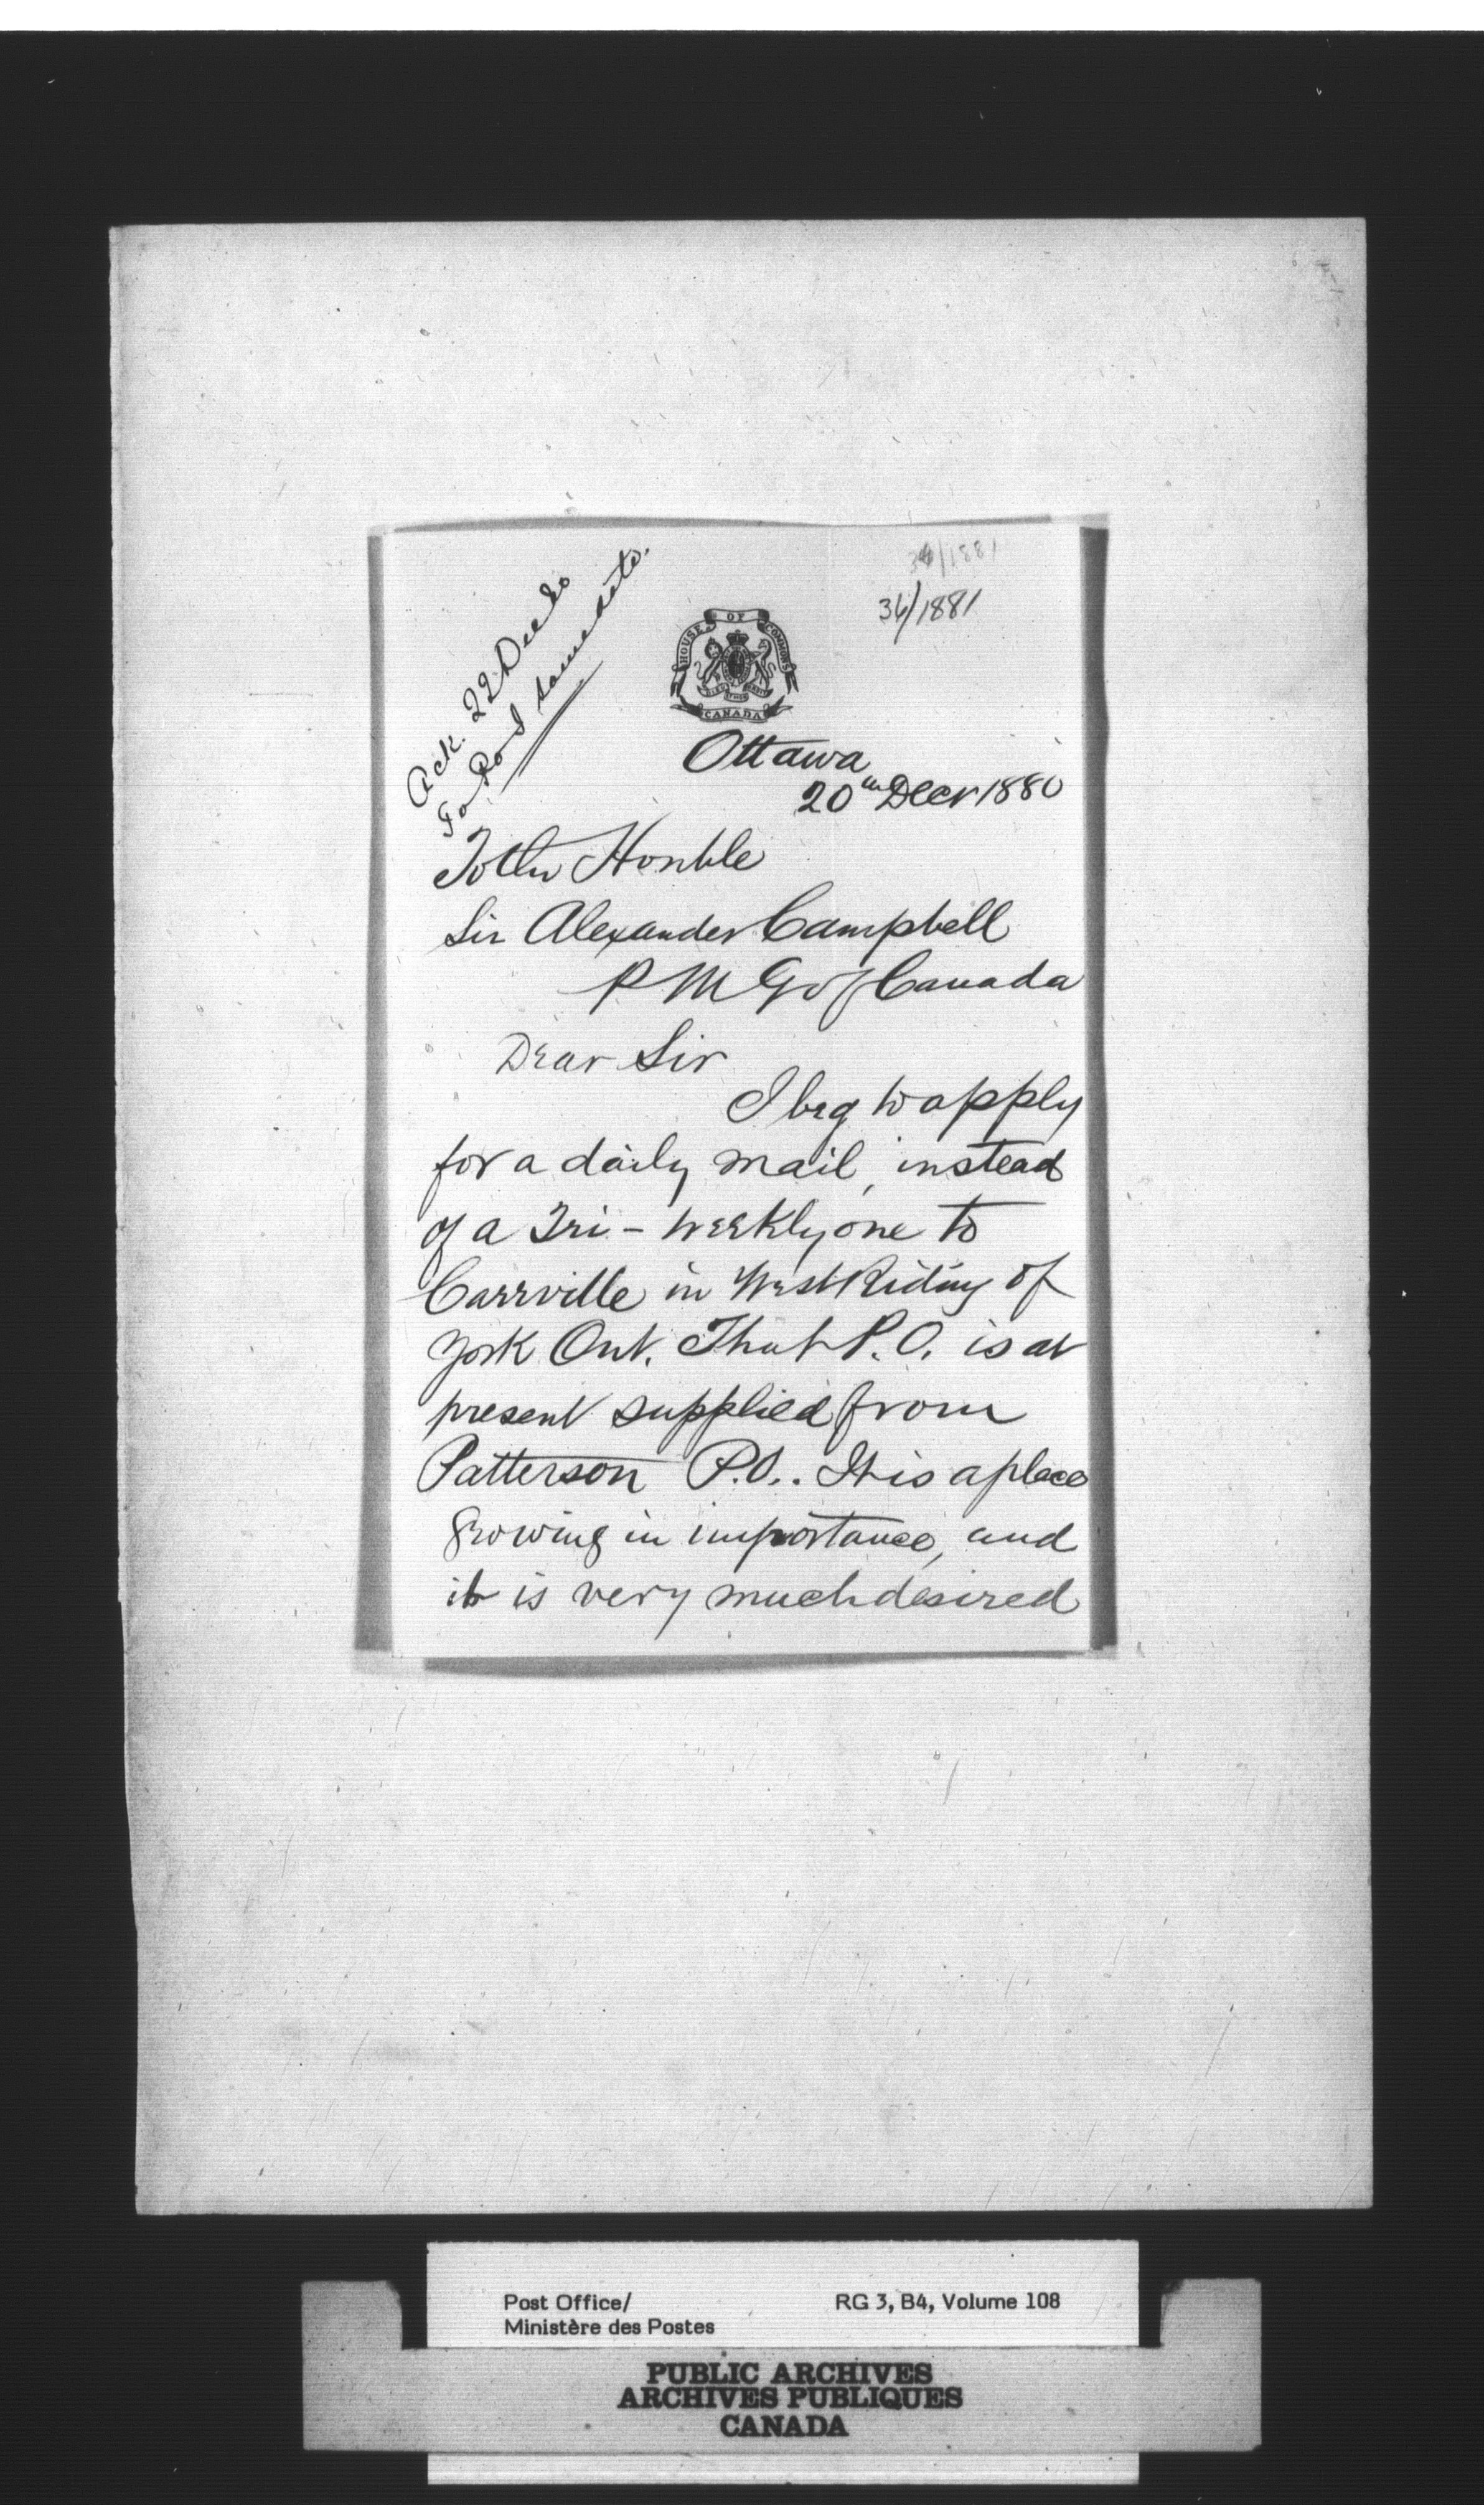 34/1881
36/1881
Ack. 22 Dec 80
To P.O.I same date.
HOUSE OF COMMONS
CANADA
Ottawa
20th Decr 1880
To the Honble
Sir Alexander Campbell
P M G of Canada
Dear Sir
I beg to apply
for a daily mail, instead
of a Tri-weekly one to
Carrville in West Riding of
York Ont. That P.O. is at
present supplied from
Patterson P.O.. It is a place
growing in importance, and
it is very much desired
Post Office/
Ministère des Postes
RG 3, B4, Volume 108
PUBLIC ARCHIVES
ARCHIVES PUBLIQUES
CANADA